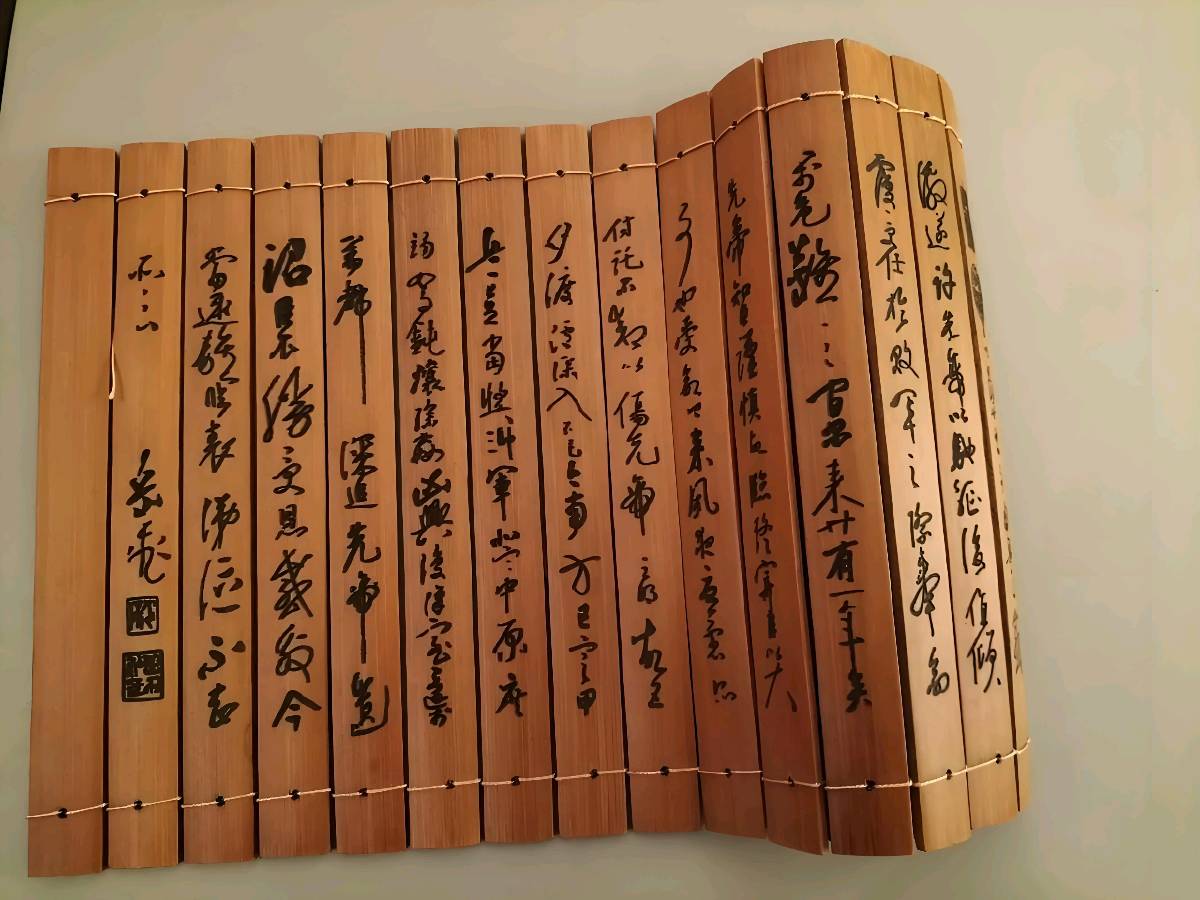 激遂許先帝以驅馳後值傾
覆受任於敗軍之際奉命
於危難之間爾來廿有一年矣
先帝知臣謹慎故臨崩寄臣以大
事也受命以來夙夜憂慮恐
付託不效以傷先帝之明故五
月渡瀘深入不毛今南方已定甲
兵已足當獎率三軍北定中原庶
竭駑鈍攘除姦凶興復漢室還於
舊都 深追先帝遺
詔臣不勝受恩感激今
當遠離臨表涕泣不知
所云 岳飛